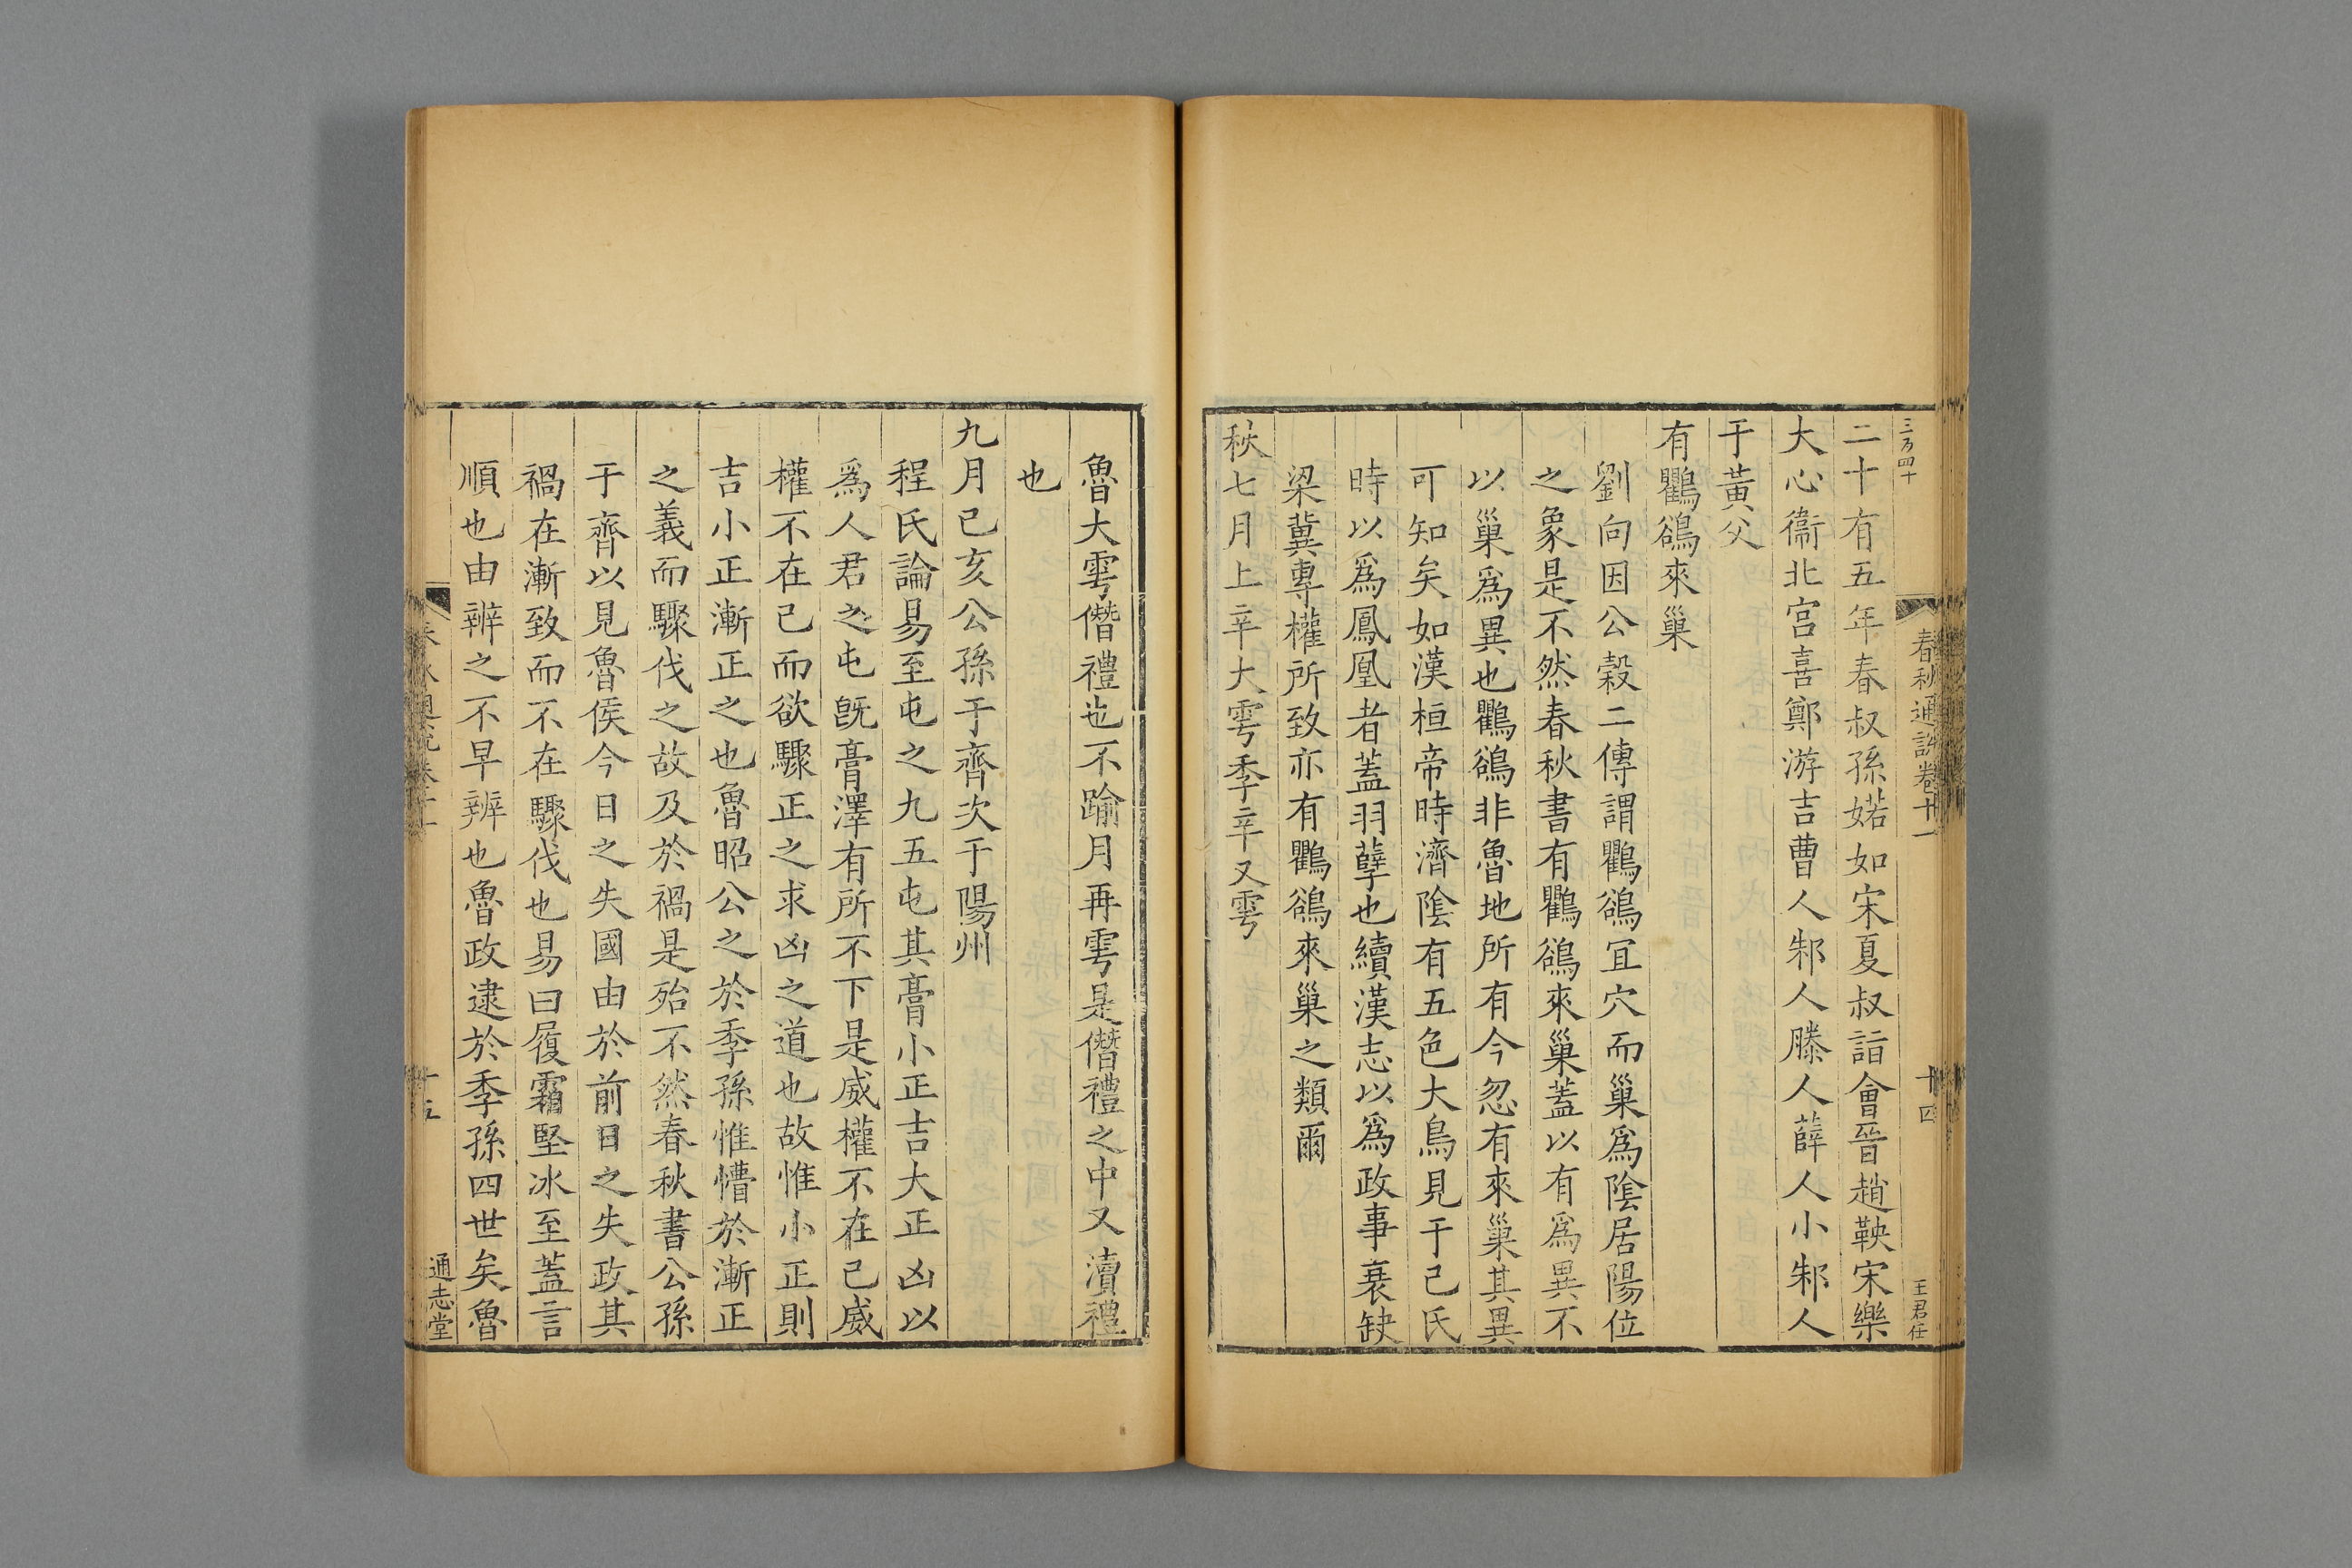 三百四十
春秋通說卷十一
十四
王君任
二十有五年春叔孫婼如宋夏叔詣會晉趙鞅宋樂
大心衞北宮喜鄭游吉曹人邾人滕人薛人小邾人
于黃父
有鸜鵒來巢
劉向因公穀二傳謂鸜鵒宜穴而巢爲陰居陽位
之象是不然春秋書有鸜鵒來巢蓋以有爲異不
以巢爲異也鸜鵒非魯地所有今忽有來巢其異
可知矣如漢桓帝時濟陰有五色大鳥見于己氏
時以爲鳳凰者蓋羽孽也續漢志以爲政事衰缺
梁冀專權所致亦有鸜鵒來巢之類爾
秋七月上辛大雩季辛又雩
魯大雩僭禮也不踰月再雩是僭禮之中又瀆禮
也
九月己亥公孫于齊次于陽州
程氏論易至屯之九五屯其膏小正吉大正凶以
爲人君之屯旣膏澤有所不下是威權不在己威
權不在己而欲驟正之求凶之道也故惟小正則
吉小正漸正之也魯昭公之於季孫惟懵於漸正
之義而驟伐之故及於禍是殆不然春秋書公孫
于齊以見魯侯今日之失國由於前日之失政其
禍在漸致而不在驟伐也易曰履霜堅冰至蓋言
順也由辨之不早辨也魯政逮於季孫四世矣魯
十五
通志堂